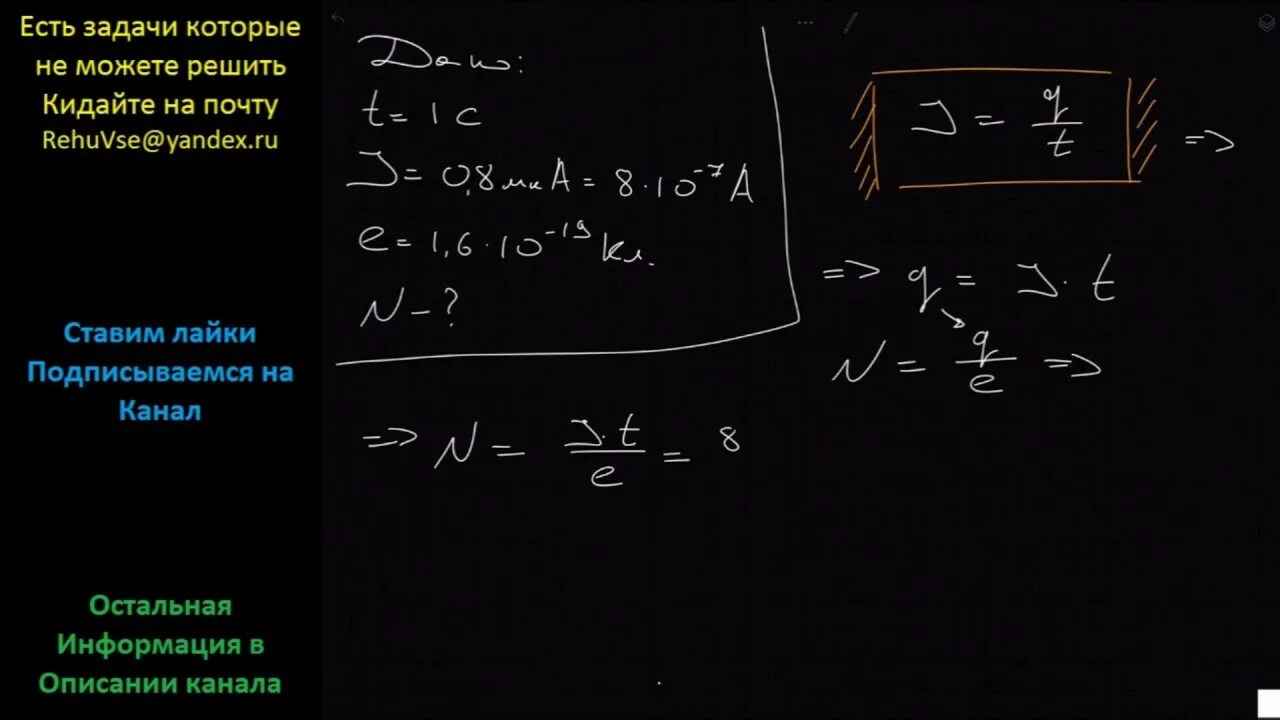 Есть задачи которые
не можете решить
Кидайте на почту
RehuVse@yandex.ru
Ставим лайки
Подписываемся на
Канал
Остальная
Информация в
Описании канала
Дано:
t = 1 c
J = 0,8 мк A = 8 · 10⁻⁷ A
e = 1,6 · 10⁻¹⁹ Кл.
N - ?
J = q/t =>
=> q = J · t
N = q/e =>
=> N = J · t/e = 8